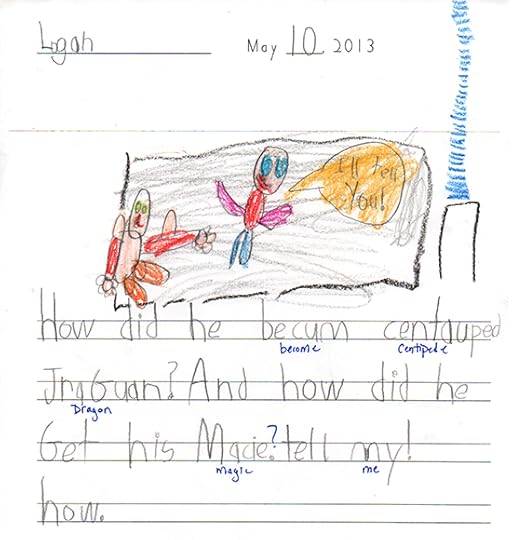 Logan May 10 2013
I'll tell
You!
How did he becum centauped
become centipede
JraGuan? And how did he
Dragon
Get his Macie.? tell my!
magic me
how.